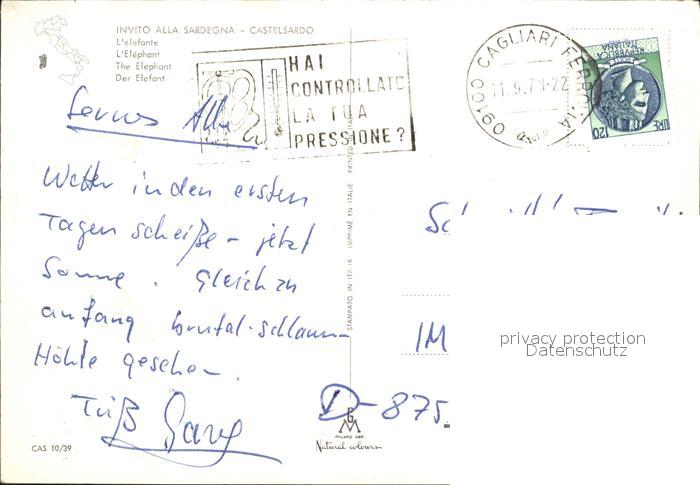 INVITO ALLA SARDEGNA - CASTELSARDO
L'elefante
L'Eléphant
The Elephant
Der Elefant
HAI
CONTROLLATO
LA TUA
PRESSIONE?
09100 CAGLIARI FERROVIA
11.9.78-22
POSTE
REPUBBLICA
ITALIANA
LIRE 120
Servus
Wetter in den ersten
Tagen scheiße - jetzt
Sonne. Gleich zu
anfang brutal-schlamm-
Höhle gesehen.
STAMPATO IN ITALIA IMPRIMÉ EN ITALIE PRINTED
IM
D-875
privacy protection
Datenschutz
CAS 10/39
MILANO DEP.
Natural colours